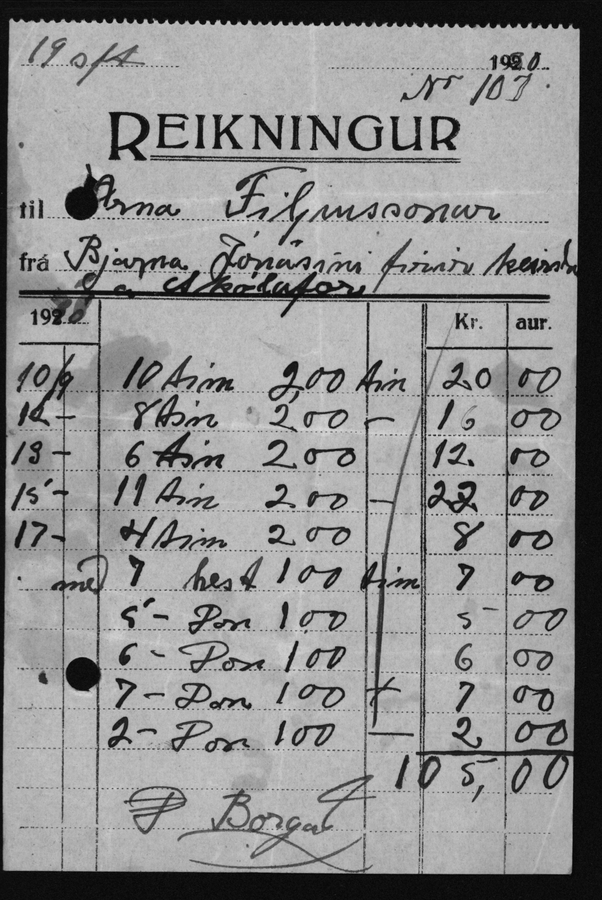 19 sft 1930
Nr 103
REIKNINGUR
til Arna Filjussonar
frá Bjarna Jónássini firir keirslu
1920 Kr. aur.
10/9 10 tsim 2,00 tsim 20 00
12 – 8 tsin 2 00 – 16 00
13 – 6 tsin 2 00 12 00
15 – 11 tsin 2 00 – 22 00
17 – 4 tsim 2 00 8 00
með 7 hest 1 00 tsim 7 00
5 – Don 1 00 5 00
6 – Don 1 00 6 00
7 – Don 1 00 7 00
2 – Don 1 00 – 2 00
105,00
Borgað